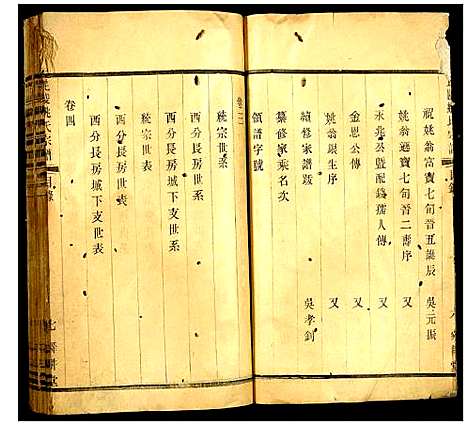 祝姚翁富寶七旬晉五誕辰 吳元振
姚翁進寶七旬晉二壽序 又
永兆公暨配錢孺人傳 又
金恩公傳 又
姚翁銀生序 又
續修家譜跋 吳孝釗
纂修家乘名次
領譜字號
卷三
統宗世系
西分長房城下支世系
統宗世表
西分長房城下支世表
卷四
姚氏宗譜 目錄